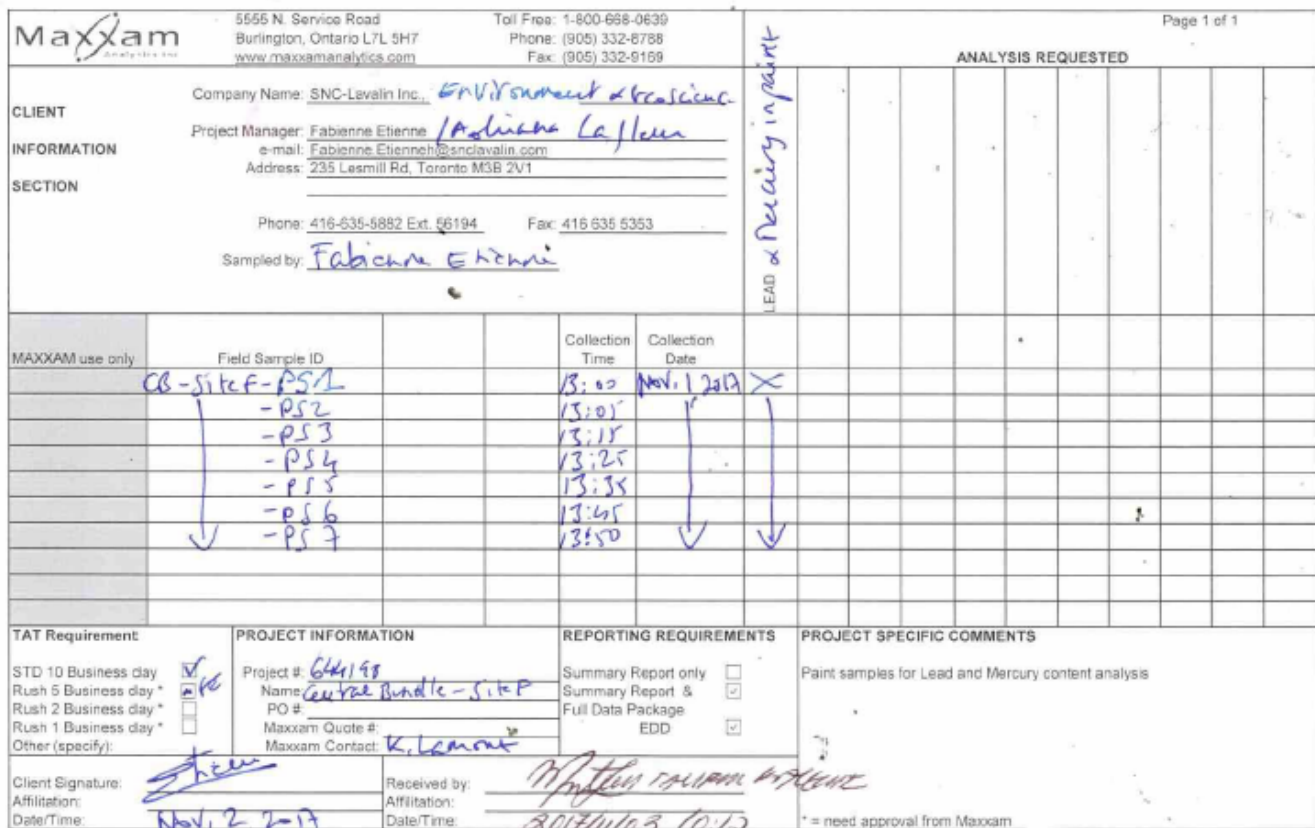 Maxxam
Analytics Inc
5555 N. Service Road
Burlington, Ontario L7L 5H7
www.maxxamanalytics.com
Toll Free: 1-800-668-0639
Phone: (905) 332-8788
Fax: (905) 332-9169
Page 1 of 1
ANALYSIS REQUESTED
LEAD & Mercury in paint
CLIENT
INFORMATION
SECTION
Company Name: SNC-Lavalin Inc., Environment &
Project Manager: Fabienne Etienne / Adriana Lafleur
e-mail: Fabienne.Etienneh@snclavalin.com
Address: 235 Lesmill Rd, Toronto M3B 2V1
Phone: 416-635-5882 Ext. 56194 Fax: 416 635 5353
Sampled by: Fabienne Etienne
MAXXAM use only Field Sample ID Collection Time Collection Date
CB-Site F-PS1 13:00 Nov. 1 2017 X
-PS2 13:05
-PS3 13:15
-PS4 13:25
-PS5 13:35
-PS6 13:45
-PS7 13:50
TAT Requirement
STD 10 Business day
Rush 5 Business day *
Rush 2 Business day *
Rush 1 Business day *
Other (specify):
PROJECT INFORMATION
Project #: 644198
Name: Central Bundle - Site F
PO #:
Maxxam Quote #:
Maxxam Contact: K. Lamont
REPORTING REQUIREMENTS
Summary Report only
Summary Report &
Full Data Package
EDD
PROJECT SPECIFIC COMMENTS
Paint samples for Lead and Mercury content analysis
Client Signature:
Affiliation:
Date/Time: Nov. 2 2017
Received by:
Affiliation:
Date/Time: 2017/11/03
* = need approval from Maxxam